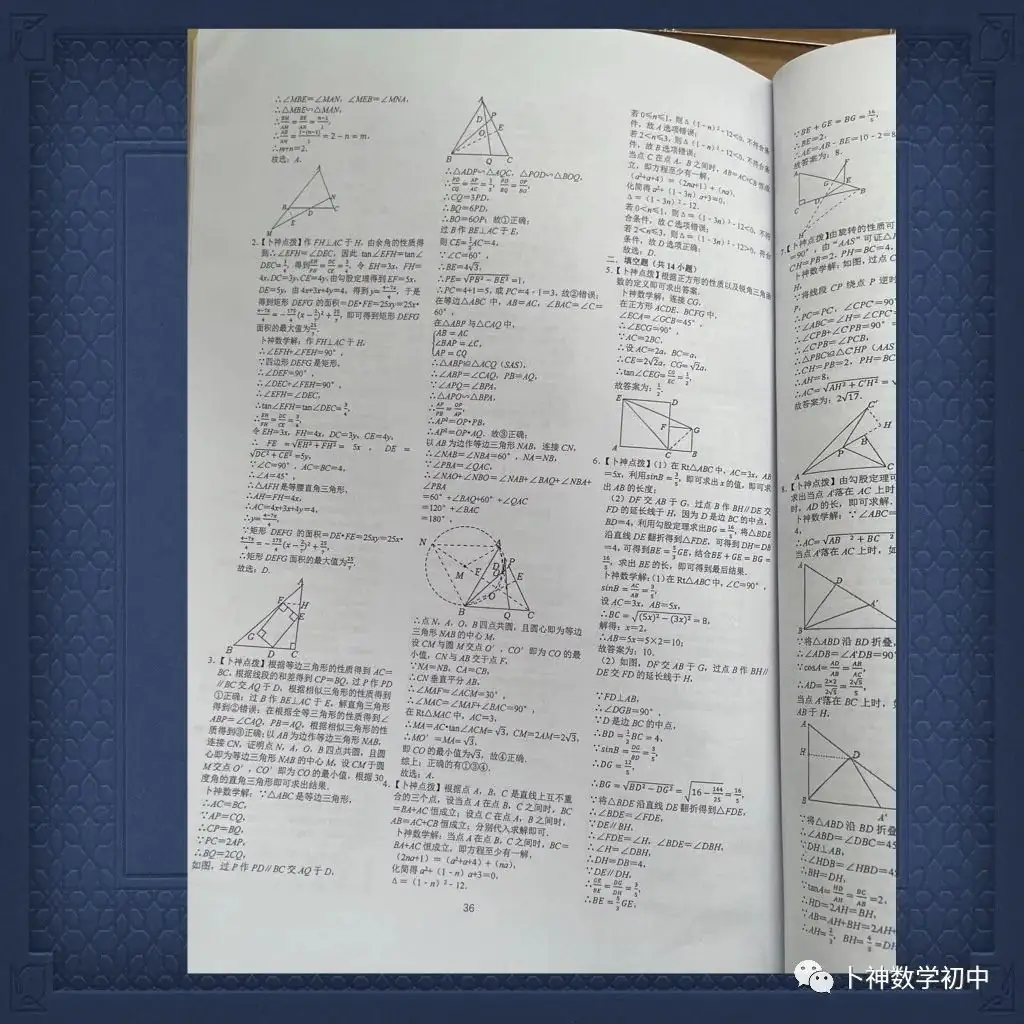 ∴∠MBE=∠MAN，∠MEB=∠MNA，
∴△MBE∽△MAN，
∴m+n=2.
故选：A.
2.【卜神点拨】作 FH⊥AC 于 H，由余角的性质得
到∠EFH=∠DEC，因此 tan∠EFH=tan∠
4x，DC=3y，CE=4y，由勾股定理得到 EF=5x，
得到矩形 DEFG 的面积=DE•FE=25xy=25x•
卜神数学解：作 FH⊥AC 于 H，
∴∠EFH+∠FEH=90°，
∵四边形 DEFG 是矩形，
∴∠DEF=90°，
∴∠DEC+∠FEH=90°，
∴∠EFH=∠DEC，
∴tan∠EFH=tan∠DEC=3/4，
令 EH=3x，FH=4x，DC=3y，CE=4y，
∴ FE =√(EH²+FH²)= 5x ， DE =
√(DC²+CE²)=5y，
∵∠C=90°，AC=BC=4，
∴∠A=45°，
∴△AFH 是等腰直角三角形，
∴AH=FH=4x，
∴AC=4x+3x+4y=4，
∴y=(4-7x)/4，
∵矩形 DEFG 的面积=DE•FE=25xy=25x•
故选：D.
3.【卜神点拨】根据等边三角形的性质得到 AC=
BC，根据线段的和差得到 CP=BQ，过 P 作 PD
∥BC 交 AQ 于 D，根据相似三角形的性质得到
①正确；过 B 作 BE⊥AC 于 E，解直角三角形
得到②错误；在根据全等三角形的性质得到∠
ABP=∠CAQ，PB=AQ，根据相似三角形的性
质得到③正确；以 AB 为边作等边三角形 NAB，
连接 CN，证明点 N，A，O，B 四点共圆，且圆
心即为等边三角形 NAB 的中心 M，设 CM 于圆
M 交点 O′，CO′即为 CO 的最小值，根据 30
度角的直角三角形即可求出结果.
卜神数学解：∵△ABC 是等边三角形，
∴AC=BC，
∵AP=CQ，
∴CP=BQ，
∵PC=2AP，
∴BQ=2CQ，
如图，过 P 作 PD∥BC 交 AQ 于 D，
∴△ADP∽△AQC，△POD∽△BOQ，
∴CQ=3PD，
∴BQ=6PD，
∴BO=6OP；故①正确；
过 B 作 BE⊥AC 于 E，
则 CE=1/2AC=4，
∵∠C=60°，
∴BE=4√3，
∴PE=√(PB²-BE²)=1，
∴PC=4+1=5，或 PC=4-1=3，故②错误；
在等边△ABC 中，AB=AC，∠BAC=∠C=
60°，
在△ABP 与△CAQ 中，
AB = AC
∠BAP = ∠C，
AP = CQ
∴△ABP≌△ACQ（SAS），
∴∠ABP=∠CAQ，PB=AQ，
∵∠APQ=∠BPA，
∴△APO∽△BPA，
∴AP/PB=OP/AP，
∴AP²=OP•PB，
∴AP²=OP•AQ．故③正确；
以 AB 为边作等边三角形 NAB，连接 CN，
∴∠NAB=∠NBA=60°，NA=NB，
∵∠PBA=∠QAC，
∴∠NAO+∠NBO=∠NAB+∠BAQ+∠NBA+
∠PBA
=60°+∠BAQ+60°+∠QAC
=120°+∠BAC
=180°，
∴点 N，A，O，B 四点共圆，且圆心即为等边
三角形 NAB 的中心 M，
设 CM 与圆 M 交点 O′，CO′即为 CO 的最
小值，CN 与 AB 交于点 F，
∵NA=NB，CA=CB，
∴CN 垂直平分 AB，
∴∠MAF=∠ACM=30°，
∴∠MAC=∠MAF+∠BAC=90°，
在 Rt△MAC 中，AC=3，
∴MA=AC•tan∠ACM=√3，CM=2AM=2√3，
∴MO′=MA=√3，
即 CO 的最小值为√3，故④正确.
综上：正确的有①③④.
故选：A.
4.【卜神点拨】根据点 A，B，C 是直线上互不重
合的三个点，设当点 A 在点 B，C 之间时，BC
=BA+AC 恒成立；设点 C 在点 A，B 之间时，
AB=AC+CB 恒成立；分别代入求解即可.
卜神数学解：当点 A 在点 B，C 之间时，BC=
BA+AC 恒成立，即方程至少有一解，
（2na+1）=（a²+a+4）+（na），
化简得 a²+（1-n）a+3=0，
Δ=（1-n）²-12，
若 0<n<1，则Δ（1-n）²-12<0，不符合条
件，故 A 选项错误；
若 2<n<3，则Δ（1-n）²-12<0，不符合条
件，故 B 选项错误；
当点 C 在点 A，B 之间时，AB=AC+CB 恒成
立，即方程至少有一解，
（a²+a+4）=（2na+1）+（na），
化简得 a²+（1-3n）a+3=0，
Δ=（1-3n）²-12，
若 0<n<1，则Δ=（1-3n）²-12<0，不符
合条件，故 C 选项错误；
若 2<n<3，则Δ=（1-3n）²-12>0，符合
条件，故 D 选项正确，
故选：D.
二．填空题（共 14 小题）
5.【卜神点拨】根据正方形的性质以及锐角三角函
数的定义即可求出答案.
卜神数学解：连接 CG，
在正方形 ACDE、BCFG 中，
∠ECA=∠GCB=45°，
∴∠ECG=90°，
∵AC=2BC，
∴设 AC=2a，BC=a，
∴CE=2√2a，CG=√2a，
∴tan∠CEG=CG/EC=1/2，
故答案为：1/2.
6.【卜神点拨】（1）在 Rt△ABC 中，AC=3x，AB
=5x，利用sinB=3/5，即可求出 x 的值，即可求
出 AB 的长度；
（2）DF 交 AB 于 G，过点 B 作 BH∥DE 交
FD 的延长线于 H，因为 D 是边 BC 的中点，
BD=4，利用勾股定理求出BG=16/5，将△BDE
沿直线 DE 翻折得到△FDE，可得到 DH=DB
=4，可得到BE=5/3GE，结合BE+GE=BG=
16/5，求出 BE 的长，即可得到最后结果.
卜神数学解：（1）在 Rt△ABC 中，∠C=90°，
sinB=AC/AB=3/5，
设 AC=3x，AB=5x，
∴BC=√((5x)²-(3x)²)=8，
解得：x=2，
∴AB=5x=5×2=10；
故答案为：10.
（2）如图，DF 交 AB 于 G，过点 B 作 BH∥
DE 交 FD 的延长线于 H，
∵FD⊥AB，
∴∠DGB=90°，
∵D 是边 BC 的中点，
∴BD=1/2BC=4，
∵sinB=DG/BD=3/5，
∴DG=12/5，
∴BG=√(BD²-DG²)=√(16-144/25)=16/5，
∵将△BDE 沿直线 DE 翻折得到△FDE，
∴∠BDE=∠FDE，
∵DE∥BH，
∴∠FDE=∠H，∠BDE=∠DBH，
∴∠H=∠DBH，
∴DH=DB=4，
∵DE∥DH，
∴GE/BE=DG/DH=3/5，
∴BE=5/3GE，
∵BE+GE=BG=16/5，
∴BE=2，
∴AE=AB-BE=10-2=8
故答案为：8.
7.【卜神点拨】由旋转的性质可
=90°，由“AAS”可证△P
CH=PB=2，PH=BC=4，
卜神数学解：如图，过点 C
∵将线段 CP 绕点 P 逆时
∴PC=PC′，∠CPC′=90°
∵∠ABC=∠H=∠CPC′=
∴∠CPB+∠C′PB=90°=
∴∠C′PB=∠PCB，
∴△PBC≌△C′HP（AAS
∴CH=PB=2，PH=BC
∴AH=8，
故答案为：2√17.
8.【卜神点拨】由勾股定理可
求出当点 A′落在 AC 上时
时，AD 的长，即可求解.
卜神数学解：∵∠ABC=
4，
∴AC=√(AB²+BC²)=
当点 A′落在 AC 上时，如
∵将△ABD 沿 BD 折叠，
∴∠ADB=∠A′DB=90°
∵cosA=AD/AB=AB/AC，
当点 A′落在 BC 上时，如
AB 于 H，
∵将△ABD 沿 BD 折叠
∴∠ABD=∠DBC=45
∵DH⊥AB，
∴∠HDB=∠HBD=45
∴BH=DH，
∵tanA=HD/AH=BC/AB=2，
∴HD=2AH=BH，
∵AB=AH+BH=2AH+
36
卜神数学初中